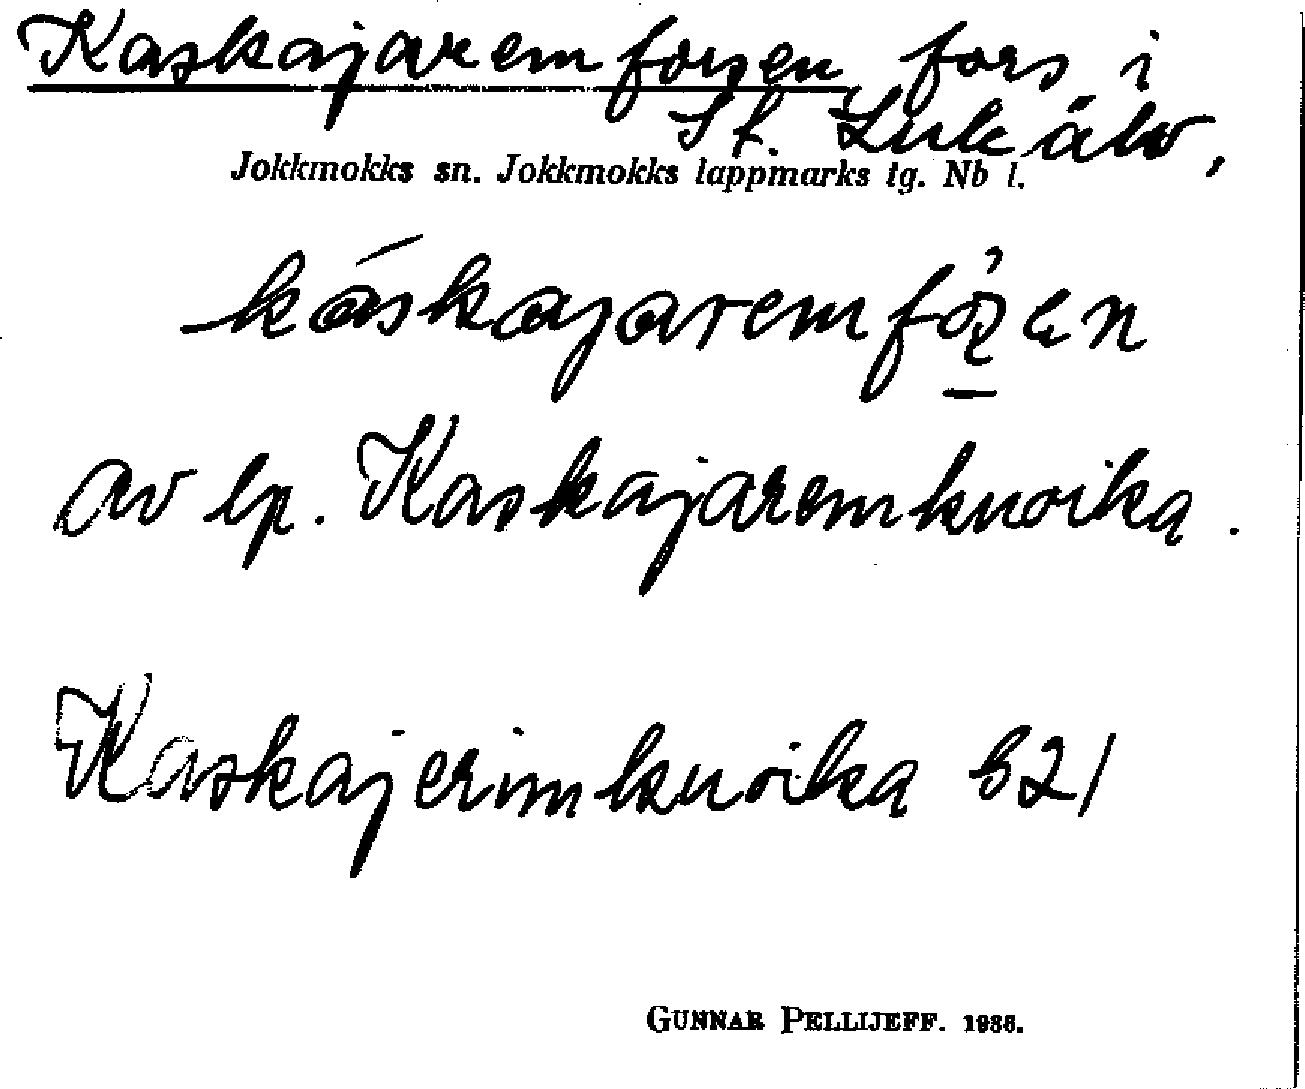 Kaskajaremforsen, fors i
St. Luleälv,
Jokkmokks sn. Jokkmokks lappmarks tg. Nb l.
av lp. Kaskajaremkuoika.
Kaskajerimkuoika 821
GUNNAR PELLIJEFF. 1936.